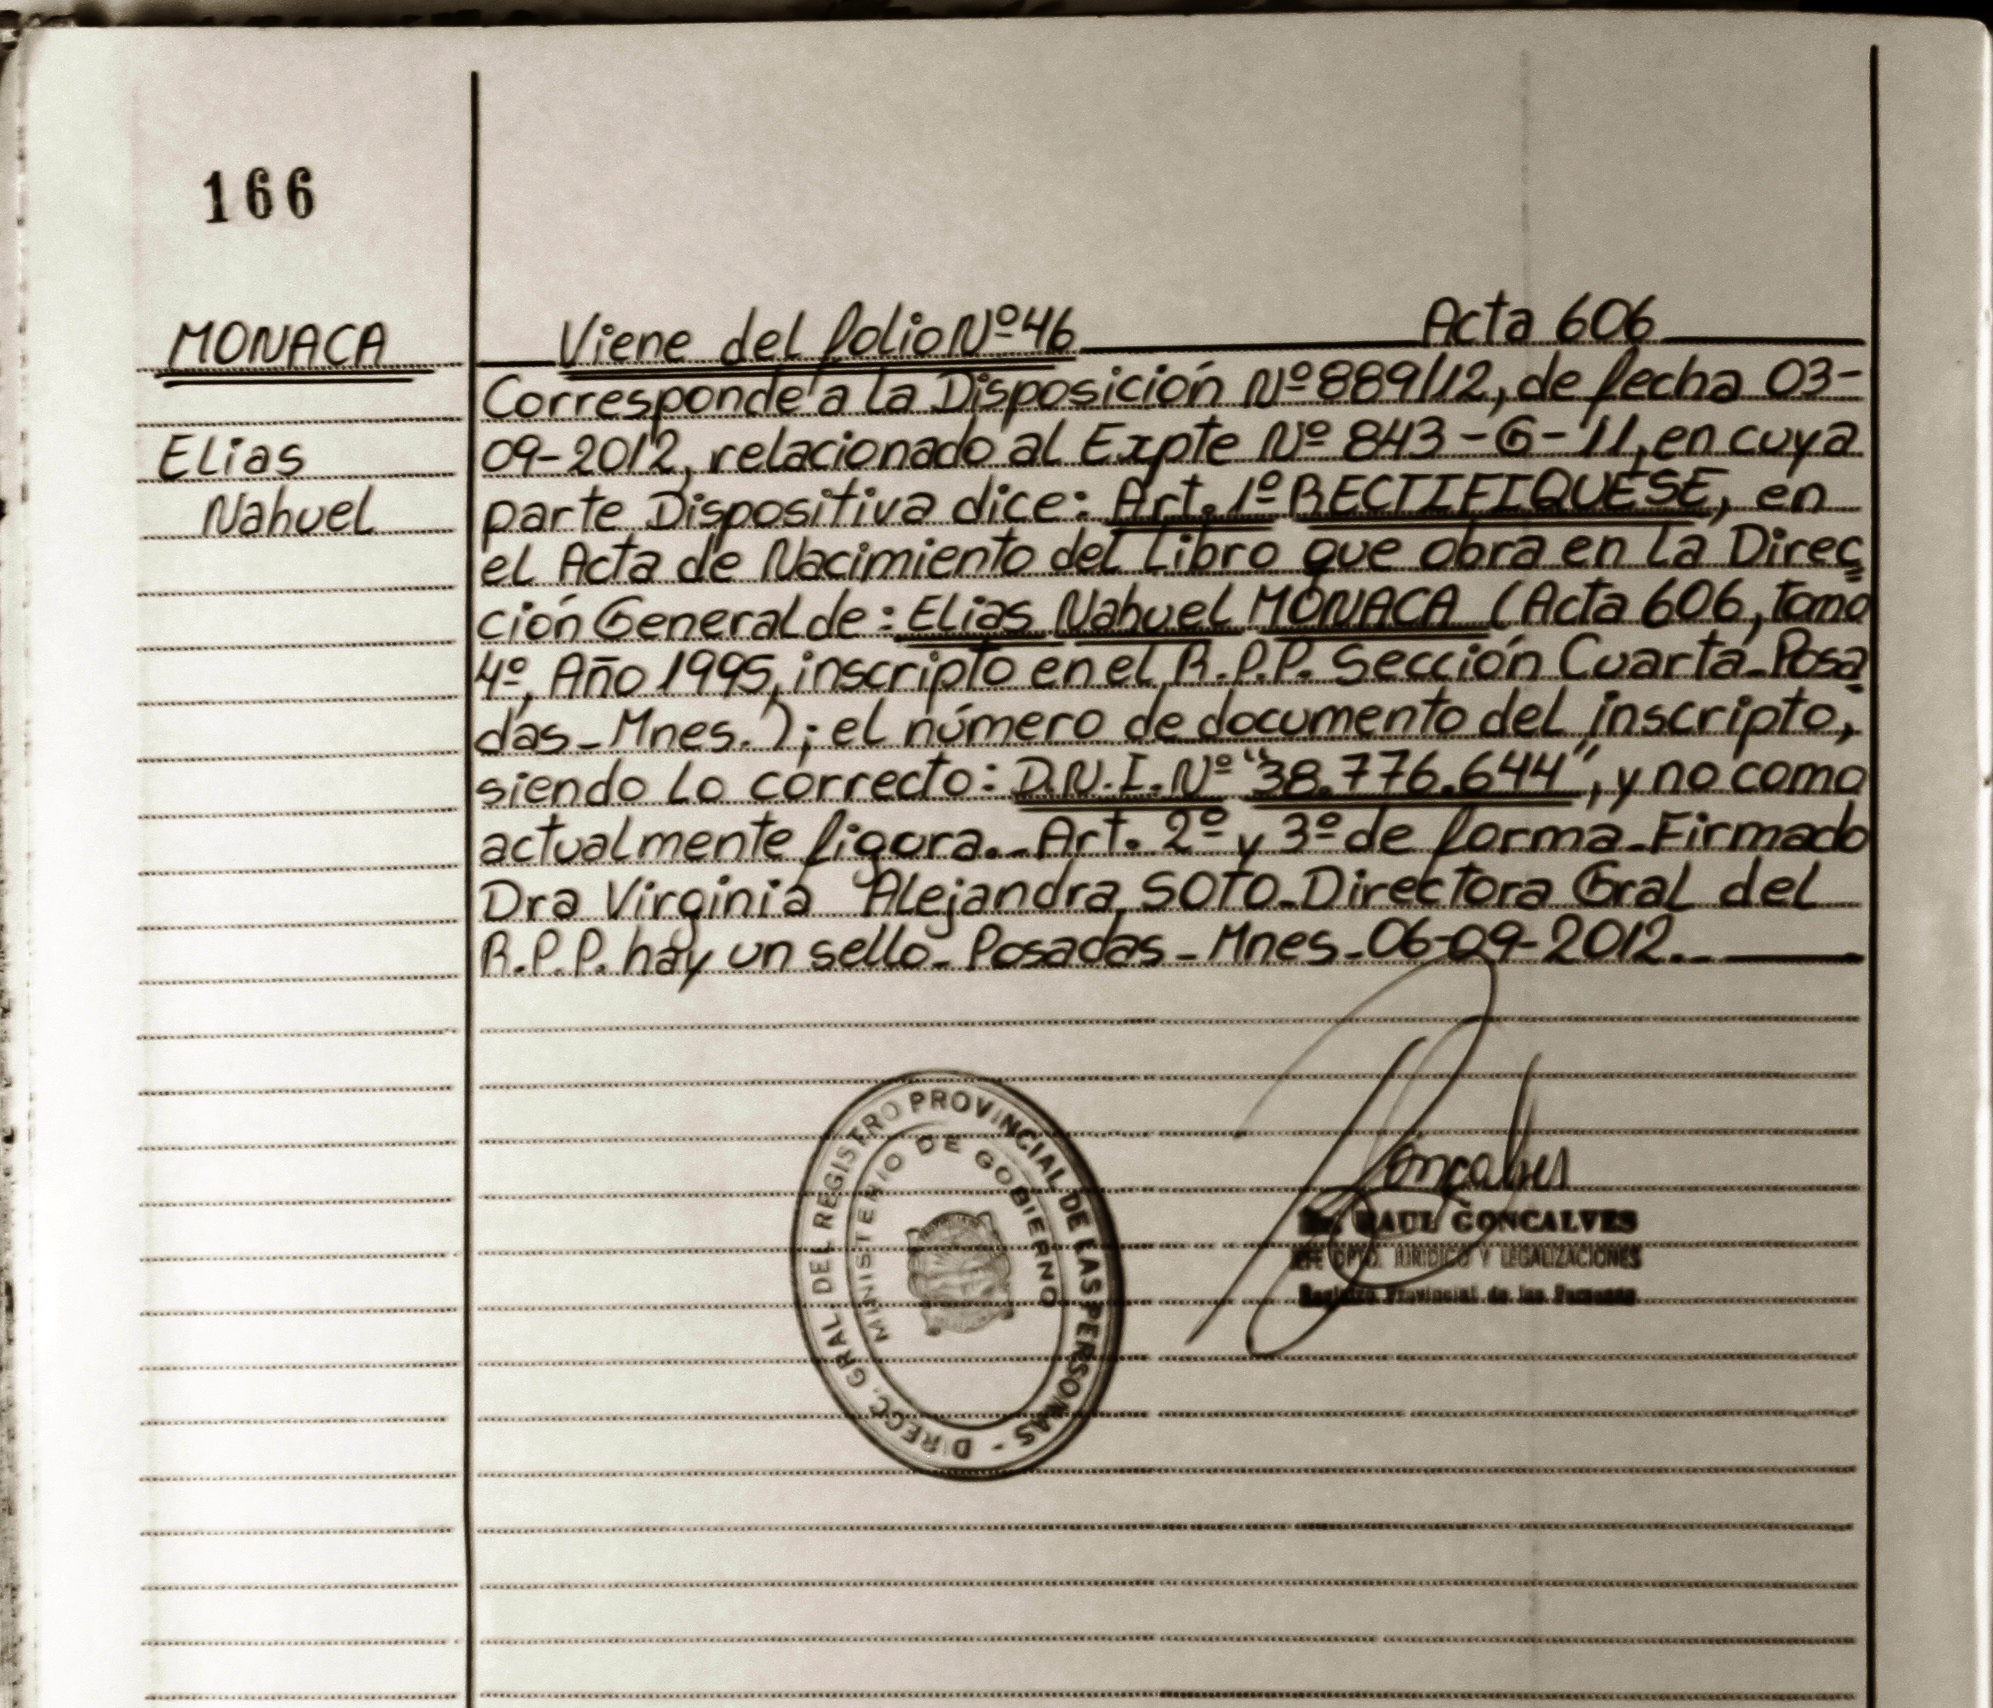 166
MONACA
Elias
Nahuel
Viene del folio Nº 46 Acta 606
Corresponde a la Disposición Nº 889/12, de fecha 03-
09-2012, relacionado al Expte Nº 843-G-11, en cuya
parte Dispositiva dice: Art. 1º RECTIFIQUESE, en
el Acta de Nacimiento del Libro que obra en la Direc
ción General de: Elias Nahuel MONACA (Acta 606, Tomo
4º, Año 1995, inscripto en el R.P.P. Sección Cuarta-Posa
das-Mnes.); el número de documento del inscripto,
siendo lo correcto: D.N.I. Nº "38.776.644", y no como
actualmente figura.- Art. 2º y 3º de forma-Firmado
Dra Virginia Alejandra SOTO-Directora Gral del
R.P.P. hay un sello- Posadas-Mnes-06-09-2012.-
DIRECC. GRAL. DEL REGISTRO PROVINCIAL DE LAS PERSONAS -
MINISTERIO DE GOBIERNO
Goncalves
Dr. RAUL GONCALVES
JEFE DPTO. JURIDICO Y LEGALIZACIONES
Registro Provincial de las Personas